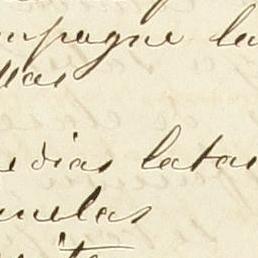 mpagne la
llas
edias latas
uelas